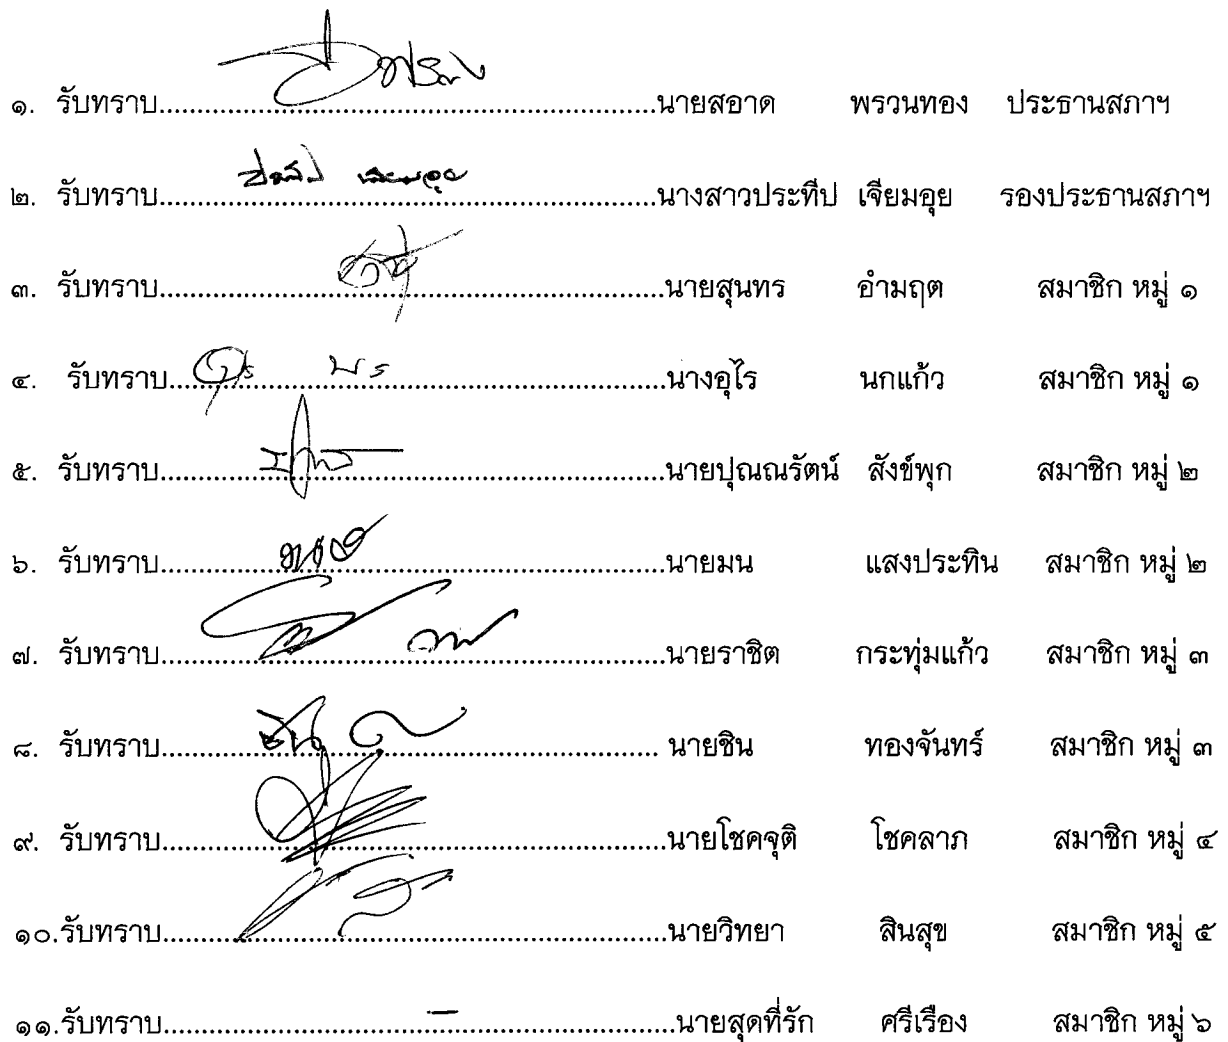 ๑. รับทราบ..........................................................นายสอาด พรวนทอง ประธานสภาฯ
๒. รับทราบ..........................................................นางสาวประทีป เจียมอุย รองประธานสภาฯ
๓. รับทราบ..........................................................นายสุนทร อำมฤต สมาชิก หมู่ ๑
๔. รับทราบ..........................................................นางอุไร นกแก้ว สมาชิก หมู่ ๑
๕. รับทราบ..........................................................นายปุณณรัตน์ สังข์พุก สมาชิก หมู่ ๒
๖. รับทราบ..........................................................นายมน แสงประทิน สมาชิก หมู่ ๒
๗. รับทราบ..........................................................นายราชิต กระทุ่มแก้ว สมาชิก หมู่ ๓
๘. รับทราบ.......................................................... นายชิน ทองจันทร์ สมาชิก หมู่ ๓
๙. รับทราบ..........................................................นายโชคจุติ โชคลาภ สมาชิก หมู่ ๔
๑๐.รับทราบ..........................................................นายวิทยา สินสุข สมาชิก หมู่ ๕
๑๑.รับทราบ...............................–...........................นายสุดที่รัก ศรีเรือง สมาชิก หมู่ ๖